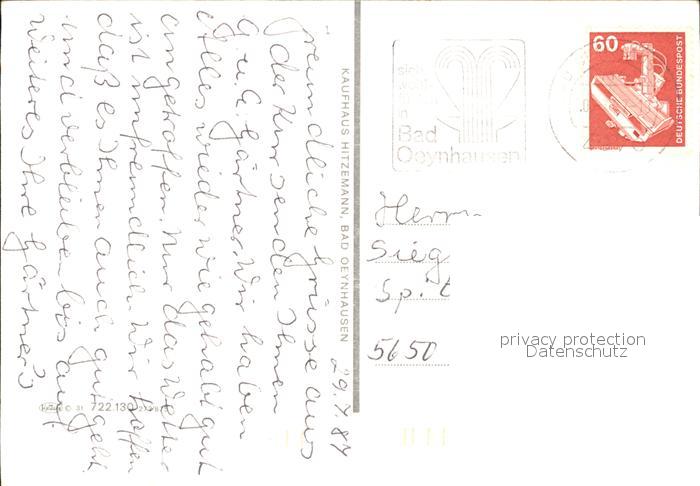 29.7.84
Freundliche Grüsse aus
der Kur senden Ihnen
G u. G Gärtner. Wir haben
Alles wieder wie gehabt gut
angetroffen. Nur das Wetter
ist unfreundlich. Wir hoffen
daß es Ihnen auch gut geht
und verbleiben bis auf
weiteres Ihre Gärtner's
KAUFHAUS HITZEMANN, BAD OEYNHAUSEN
722.130
Bad
Oeynhausen
60
DEUTSCHE BUNDESPOST
Herrn
Sieg
Spit
5650
privacy protection
Datenschutz